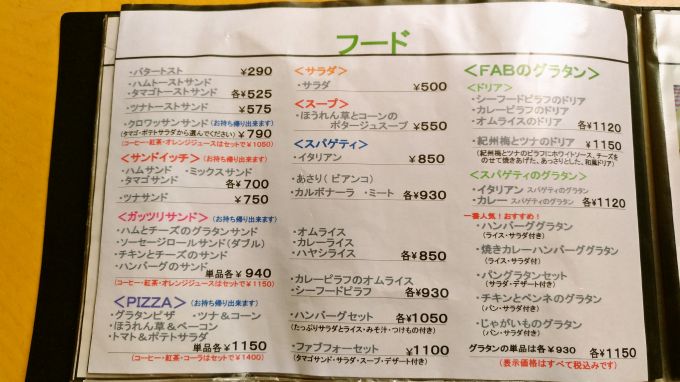 フード
・バタートスト ¥290
・ハムトーストサンド
・タマゴトーストサンド 各¥525
・ツナトーストサンド ¥575
・クロワッサンサンド（お持ち帰り出来ます）
（タマゴ・ポテトサラダから選んでください） ¥790
（コーヒー・紅茶・オレンジジュースはセットで¥1050）
＜サンドイッチ＞（お持ち帰り出来ます）
・ハムサンド ・ミックスサンド
・タマゴサンド 各¥700
・ツナサンド ¥750
＜ガッツリサンド＞（お持ち帰り出来ます）
・ハムとチーズのグラタンサンド
・ソーセージロールサンド（ダブル）
・チキンとチーズのサンド
・ハンバーグのサンド 単品各¥940
（コーヒー・紅茶・オレンジジュースはセットで¥1150）
＜PIZZA＞（お持ち帰り出来ます）
・グラタンピザ ・ツナ＆コーン
・ほうれん草＆ベーコン
・トマト＆ポテトサラダ
単品各¥1150
（コーヒー・紅茶・コーラはセットで¥1400）
＜サラダ＞
・サラダ ¥500
＜スープ＞
・ほうれん草とコーンの
ポタージュスープ ¥550
＜スパゲティ＞
・イタリアン ¥850
・あさり（ビアンコ）
・カルボナーラ ・ミート 各¥930
・オムライス
・カレーライス
・ハヤシライス 各¥850
・カレーピラフのオムライス
・シーフードピラフ 各¥930
・ハンバーグセット 各¥1050
（たっぷりサラダとライス・みそ汁・つけもの付き）
・ファブフォーセット ¥1100
（タマゴサンド・サラダ・スープ・デザート付き）
＜FABのグラタン＞
＜ドリア＞
・シーフードピラフのドリア
・カレーピラフのドリア
・オムライスのドリア 各¥1120
・紀州梅とツナのドリア ¥1150
（紀州梅とツナのピラフにホワイトソース、チーズを
のせて焼きあげた、あっさりとした、和風ドリア）
＜スパゲティのグラタン＞
・イタリアン スパゲティのグラタン
・カレー スパゲティのグラタン 各¥1120
一番人気！おすすめ！
・ハンバーググラタン
（ライス・サラダ付き）
・焼きカレーハンバーググラタン
（ライス・サラダ付き）
・パングラタンセット
（サラダ・デザート付き）
・チキンとペンネのグラタン
（パン・サラダ付き）
・じゃがいものグラタン
（パン・サラダ付き）
グラタンの単品は各¥930 各¥1150
（表示価格はすべて税込みです）